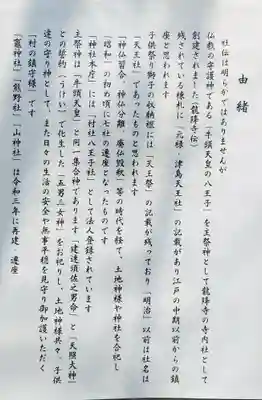 由緒
社伝は明らかではありませんが
仏教の守護神である「牛頭天皇の八王子」を主祭神として龍降寺の寺内社として
創建されました(龍降寺伝)
残されている棟札に「元様 津島天王社」の記載があり江戸の中期以前からの鎮
座と思われます
子供祭り獅子の収納裡には「天王祭」の記載が残っており「明治」以前は社名は
「天王社」であったものと思われます
「神仏習合、神仏分離、廃仏毀釈」等の時代を経て、土地神様や神社を合祀し
「昭和」の初め頃に七社の遷座となったものです
「神社本庁」には「村社八王子社」として法人登録されています
主祭神は「牛頭天皇」と同一集合神であります「建速須佐之男命」と「天照大神」
との誓約(うけい)で化生した「五男三女神」をお祀りし、土地神様共々、子供
達の守り神として、また日々の生活の安全や無事平穏を見守り御加護いただく
「村の鎮守様」です
「竈神社」「熊野社」「山神社」は令和三年に再建・遷座